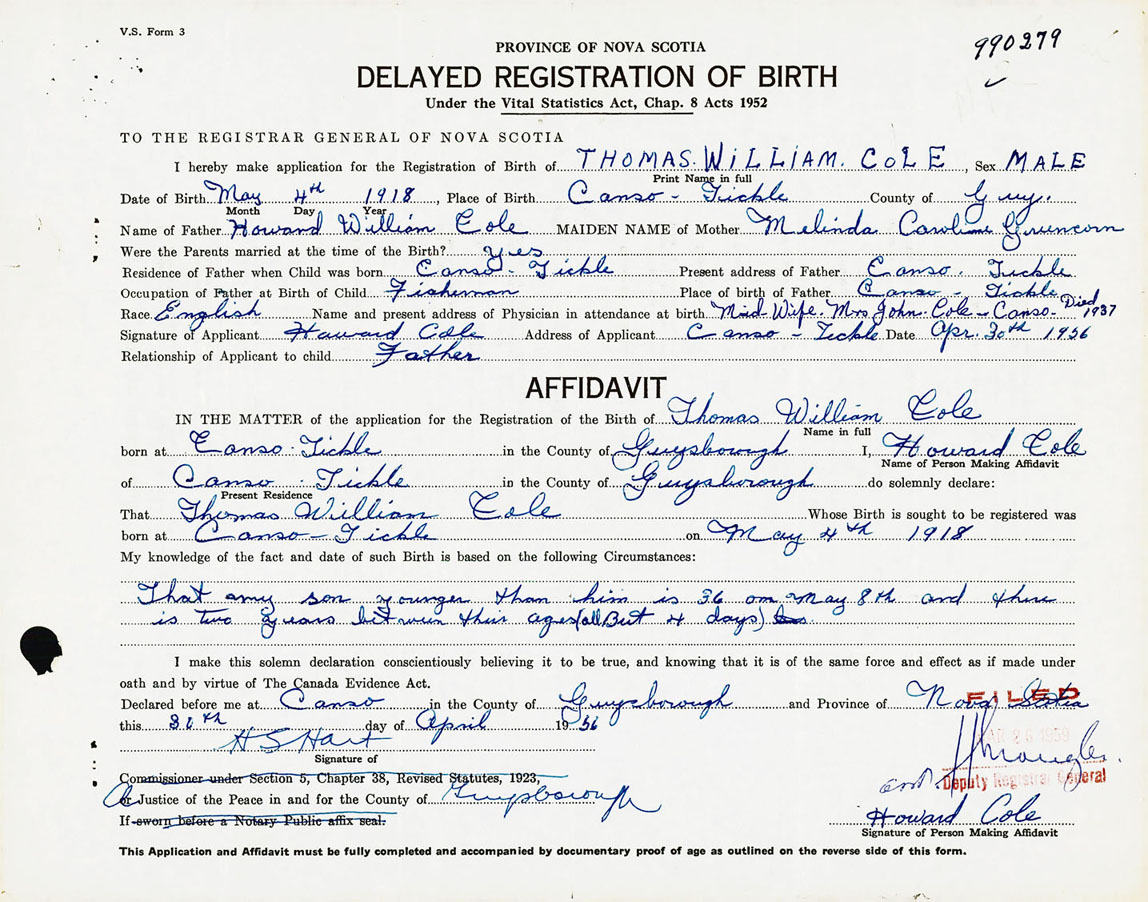 V.S. Form 3
990279
PROVINCE OF NOVA SCOTIA
DELAYED REGISTRATION OF BIRTH
Under the Vital Statistics Act, Chap. 8 Acts 1952
TO THE REGISTRAR GENERAL OF NOVA SCOTIA
I hereby make application for the Registration of Birth of THOMAS. WILLIAM. COLE, Sex MALE
Print Name in full
Date of Birth May 4th 1918, Place of Birth Canso - Tickle County of Guy.
Month Day Year
Name of Father Howard William Cole MAIDEN NAME of Mother Melinda Caroline Greencorn
Were the Parents married at the time of the Birth? yes
Residence of Father when Child was born Canso - Tickle Present address of Father Canso. Tickle
Occupation of Father at Birth of Child Fisherman Place of birth of Father Canso - Tickle
Race English Name and present address of Physician in attendance at birth Mid-Wife. Mrs John. Cole - Canso - Died 1937
Signature of Applicant Howard Cole Address of Applicant Canso - Tickle Date Apr. 30th 1956
Relationship of Applicant to child Father
AFFIDAVIT
IN THE MATTER of the application for the Registration of the Birth of Thomas William Cole
Name in full
born at Canso - Tickle in the County of Guysborough I, Howard Cole
Name of Person Making Affidavit
of Canso - Tickle in the County of Guysborough do solemnly declare:
Present Residence
That Thomas William Cole Whose Birth is sought to be registered was
born at Canso - Tickle on May 4th 1918
My knowledge of the fact and date of such Birth is based on the following Circumstances:
That my son younger than him is 36 on May 8th and there
is two years between their ages (all But 4 days)
I make this solemn declaration conscientiously believing it to be true, and knowing that it is of the same force and effect as if made under
oath and by virtue of The Canada Evidence Act.
Declared before me at Canso in the County of Guysborough and Province of Nova Scotia
FILED
this 30th day of April 1956
H S Hart
Signature of
Commissioner under Section 5, Chapter 38, Revised Statutes, 1923,
or Justice of the Peace in and for the County of Guysborough
Deputy Registrar General
If sworn before a Notary Public affix seal.
Howard Cole
Signature of Person Making Affidavit
This Application and Affidavit must be fully completed and accompanied by documentary proof of age as outlined on the reverse side of this form.